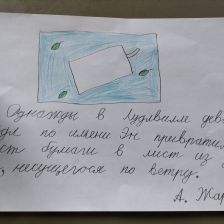 Однажды в Лудлвилле дев
по имени Эн превратил
ст бумаги в лист из
, несущегося по ветру.
А. Жар